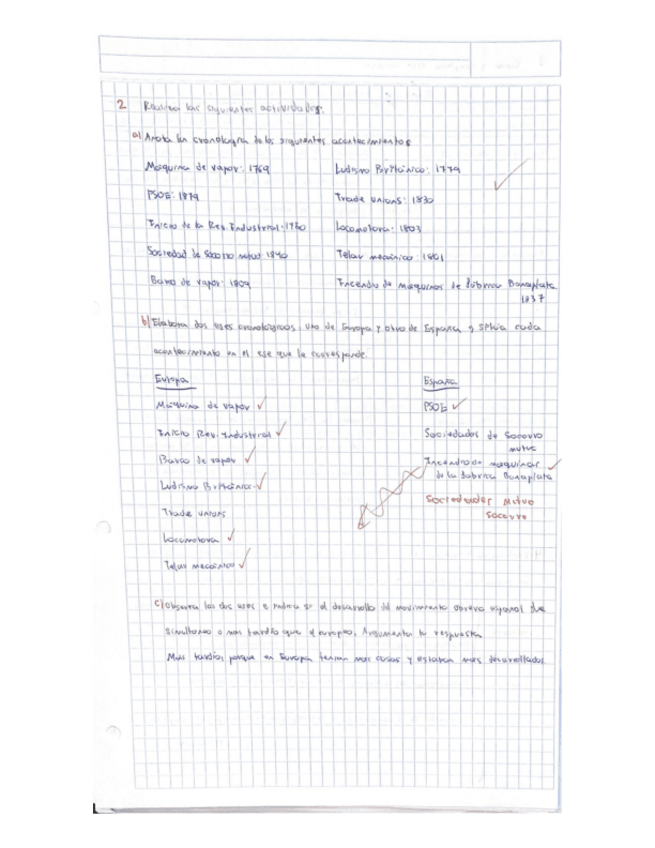 2 Realiza las siguientes actividades:
a) Anota la cronología de los siguientes acontecimientos
Maquina de vapor: 1769
Ludismo Británico: 1779
PSOE: 1879
Trade unions: 1830
Inicio de la Rev. Industrial: 1760
Locomotora: 1803
Sociedad de Socorro mutuo 1840
Telar mecánico: 1801
Barco de vapor: 1809
Incendio de maquinas de fabrica Bonaplata
1837
b) Elabora dos ejes cronologicos, uno de Europa y otro de España y situa cada
acontecimiento en el eje que le corresponde.
Europa
España
Maquina de vapor
PSOE
Inicio Rev. Industrial
Sociedades de Socorro
mutuo
Barco de vapor
Incendio de maquinas
de la fabrica Bonaplata
Ludismo Británico
Sociedades Mutuo
Socorro
Trade unions
Locomotora
Telar mecánico
c) Observa los dos ejes e indica si el desarrollo del movimiento obrero español fue
simultaneo o mas tardío que el europeo. Argumenta tu respuesta
Mas tardío, porque en Europa tenian mas cosas y estaban mas desarrollados